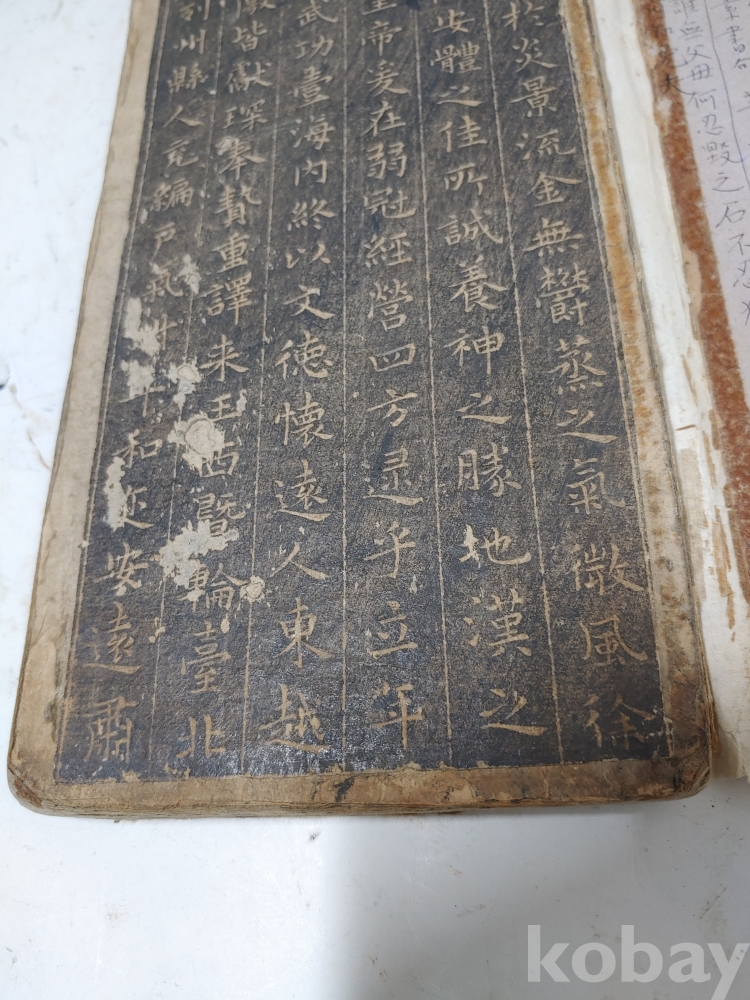 書句
無父母何忍毀之石不忍
夫
於炎景流金無鬱蒸之氣微風徐
安體之佳所誠養神之勝地漢之
皇帝爰在弱冠經營四方逮乎立年
武功壹海内終以文德懷遠人東越
皆獻琛奉贄重譯来王西暨輪臺北
列州縣人充編戸氣和迩安遠肅
kobay